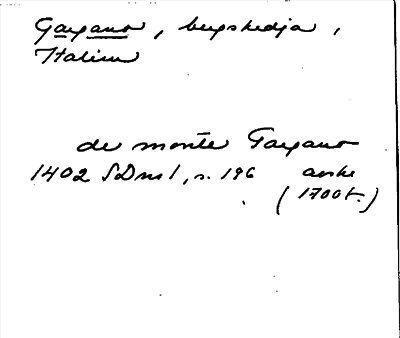 Gargano, bergskedja,
Italien
de monte Gargano
1402 SDns 1, s. 196 avskr
(1700t.)